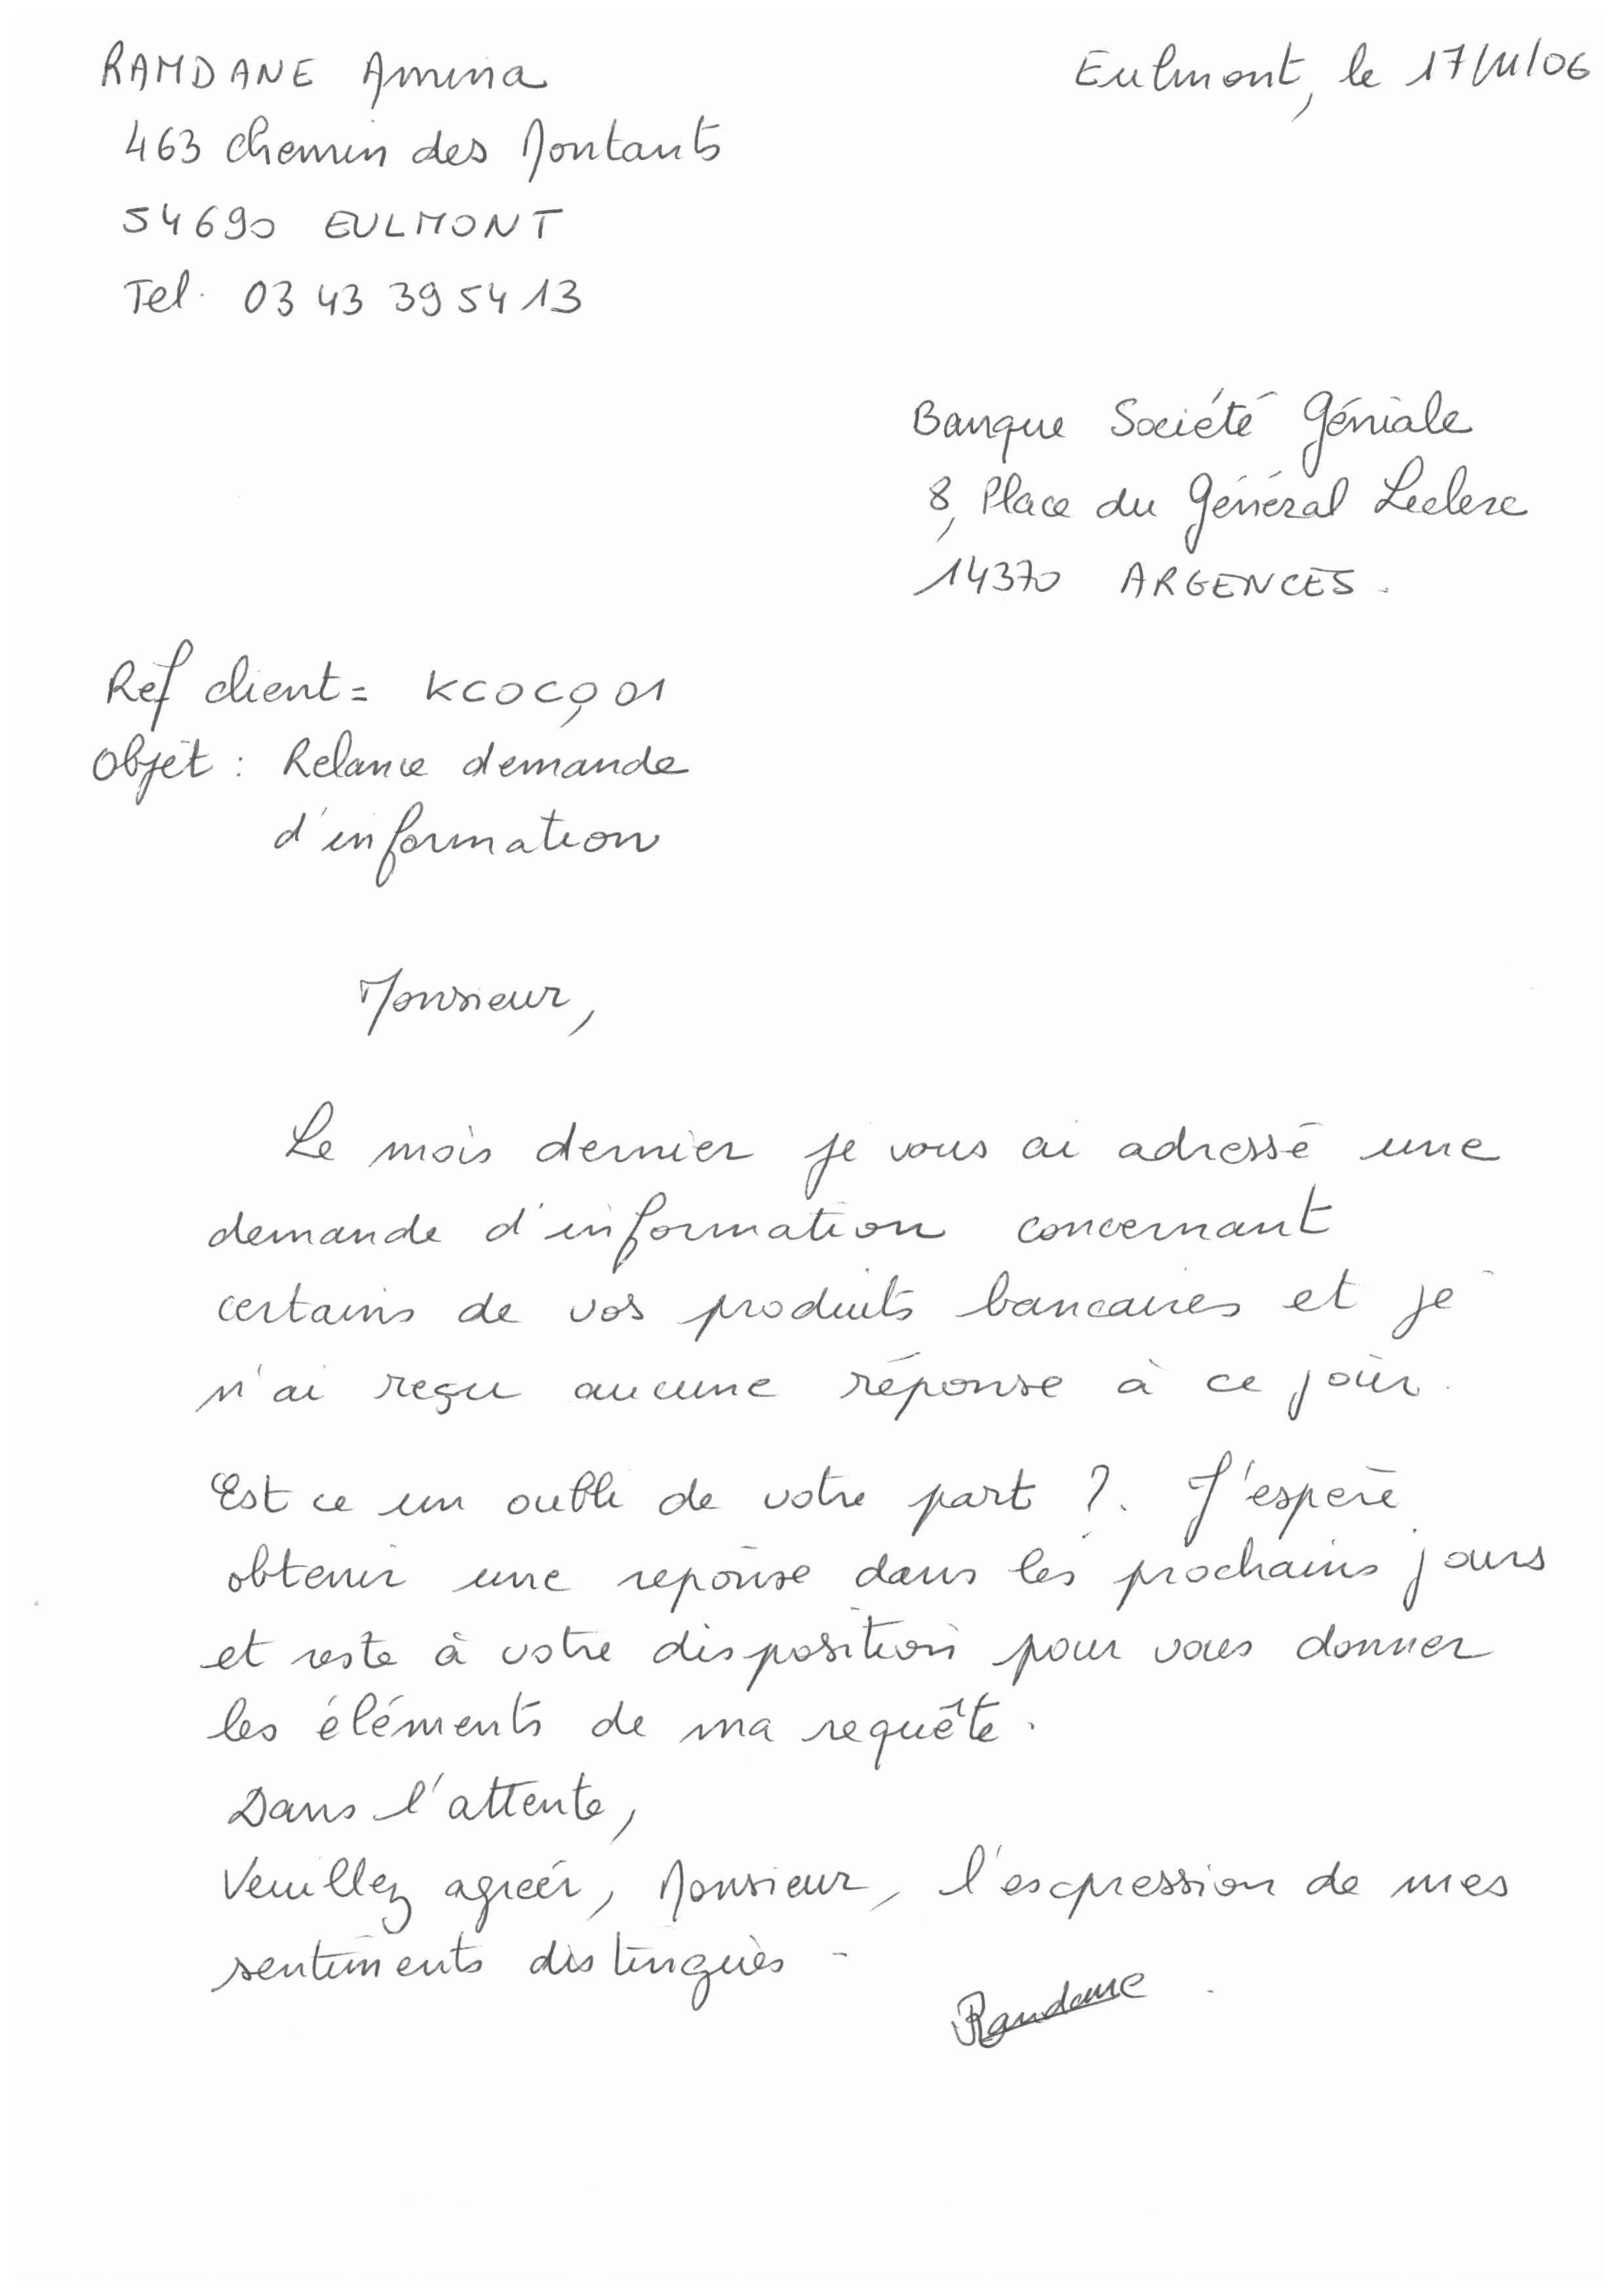 RAMDANE Amina
Eulmont, le 17/11/06
463 chemin des Montants
54690 EULMONT
Tel. 03 43 39 54 13
Banque Société Géniale
8, Place du Général Leclerc
14370 ARGENCES.
Ref client = KCOCQ01
Objet : Relance demande
d'information
Monsieur,
Le mois dernier je vous ai adressé une
demande d'information concernant
certains de vos produits bancaires et je
n'ai reçu aucune réponse à ce jour.
Est ce un oubli de votre part ?. J'espère
obtenir une reponse dans les prochains jours
et reste à votre disposition pour vous donner
les éléments de ma requête.
Dans l'attente,
Veuillez agréer, Monsieur, l'expression de mes
sentiments distingués -
Ramdane